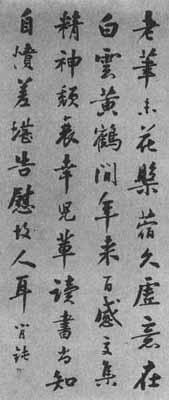 老筆未花槃蒩久虛意在
白雲黃鶴間年來百感交集
精神頹衰幸兒輩讀書尚知
自憤差堪告慰故人耳